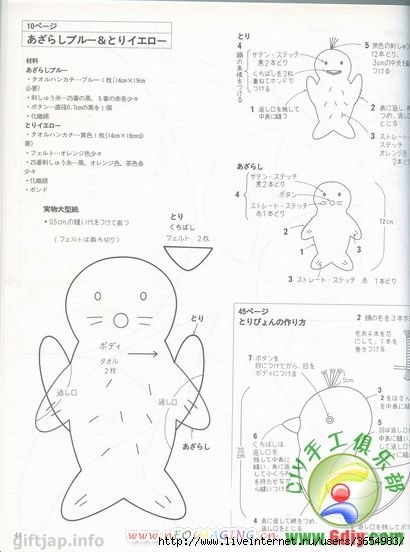 10ページ
あざらしブルー&とりイエロー
材料
あざらしブルー
・タオルハンカチ…ブルー1枚(14cm×19cm
必要)
・刺しゅう糸…25番の黒、5番の赤各少々
・ボタン…直径0.7cmの黒を1個
・化繊綿
とりイエロー
・タオルハンカチ…黄色1枚(14cm×18cm必
要)
・フェルト…オレンジ色少々
・25番刺しゅう糸…黒、オレンジ色、茶色各
少々
・化繊綿
・ボンド
実物大型紙
・0.5cmの縫い代をつけて裁つ
(フェルトは裁ち切り)
とり
くちばし
フェルト 2枚
とり
ボディ
タオル
2枚
返し口
返し口
あざらし
とり
4
頭の表横をつける
サテン・ステッチ
黒2本どり
くちばしを2枚
重ねてボンドで
つける
1 返し口を残して
中表に縫う
5 茶色の刺しゅう
12本どり、
3cmの中央を
つける
2 表に返し
つめ、返し
とじる
3 ストレート
ステッチ
オレンジ色
2本どり
あざらし
4
サテン・ステッチ
黒2本どり
ボタン
ストレート・ステッチ
赤1本どり
2
1
3
12cm
3 ストレート・ステッチ 赤 1本どり
45ページ
とりぴょんの作り方
2 頭の毛を3本作
毛糸4本を花
にして、1本を
巻きつける
7 ボタンを
目につけてから、目を
ボディにつける
5cm
20cm
6
くちばしは
返し口を
残して中表に
縫い、表に返
4 表に返して綿をつめ、
giftjap.info
44
www.NEOFIMAGING.cn
DIY手工俱乐部
www.6diy.com
http://www.liveinternet.ru/users/3654983/